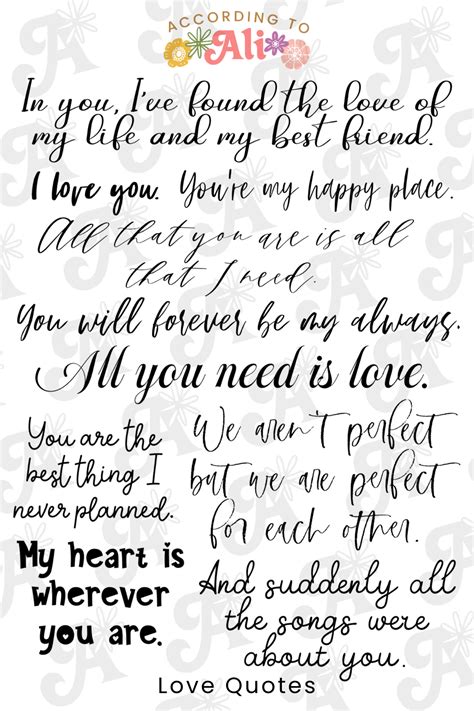 ACCORDING TO
Ali
In you, I've found the love of
my life and my best friend.
I love you. You're my happy place.
All that you are is all
that I need.
You will forever be my always.
All you need is love.
You are the
best thing I
never planned.
We aren't perfect
but we are perfect
for each other.
My heart is
wherever
you are.
And suddenly all
the songs were
about you.
Love Quotes